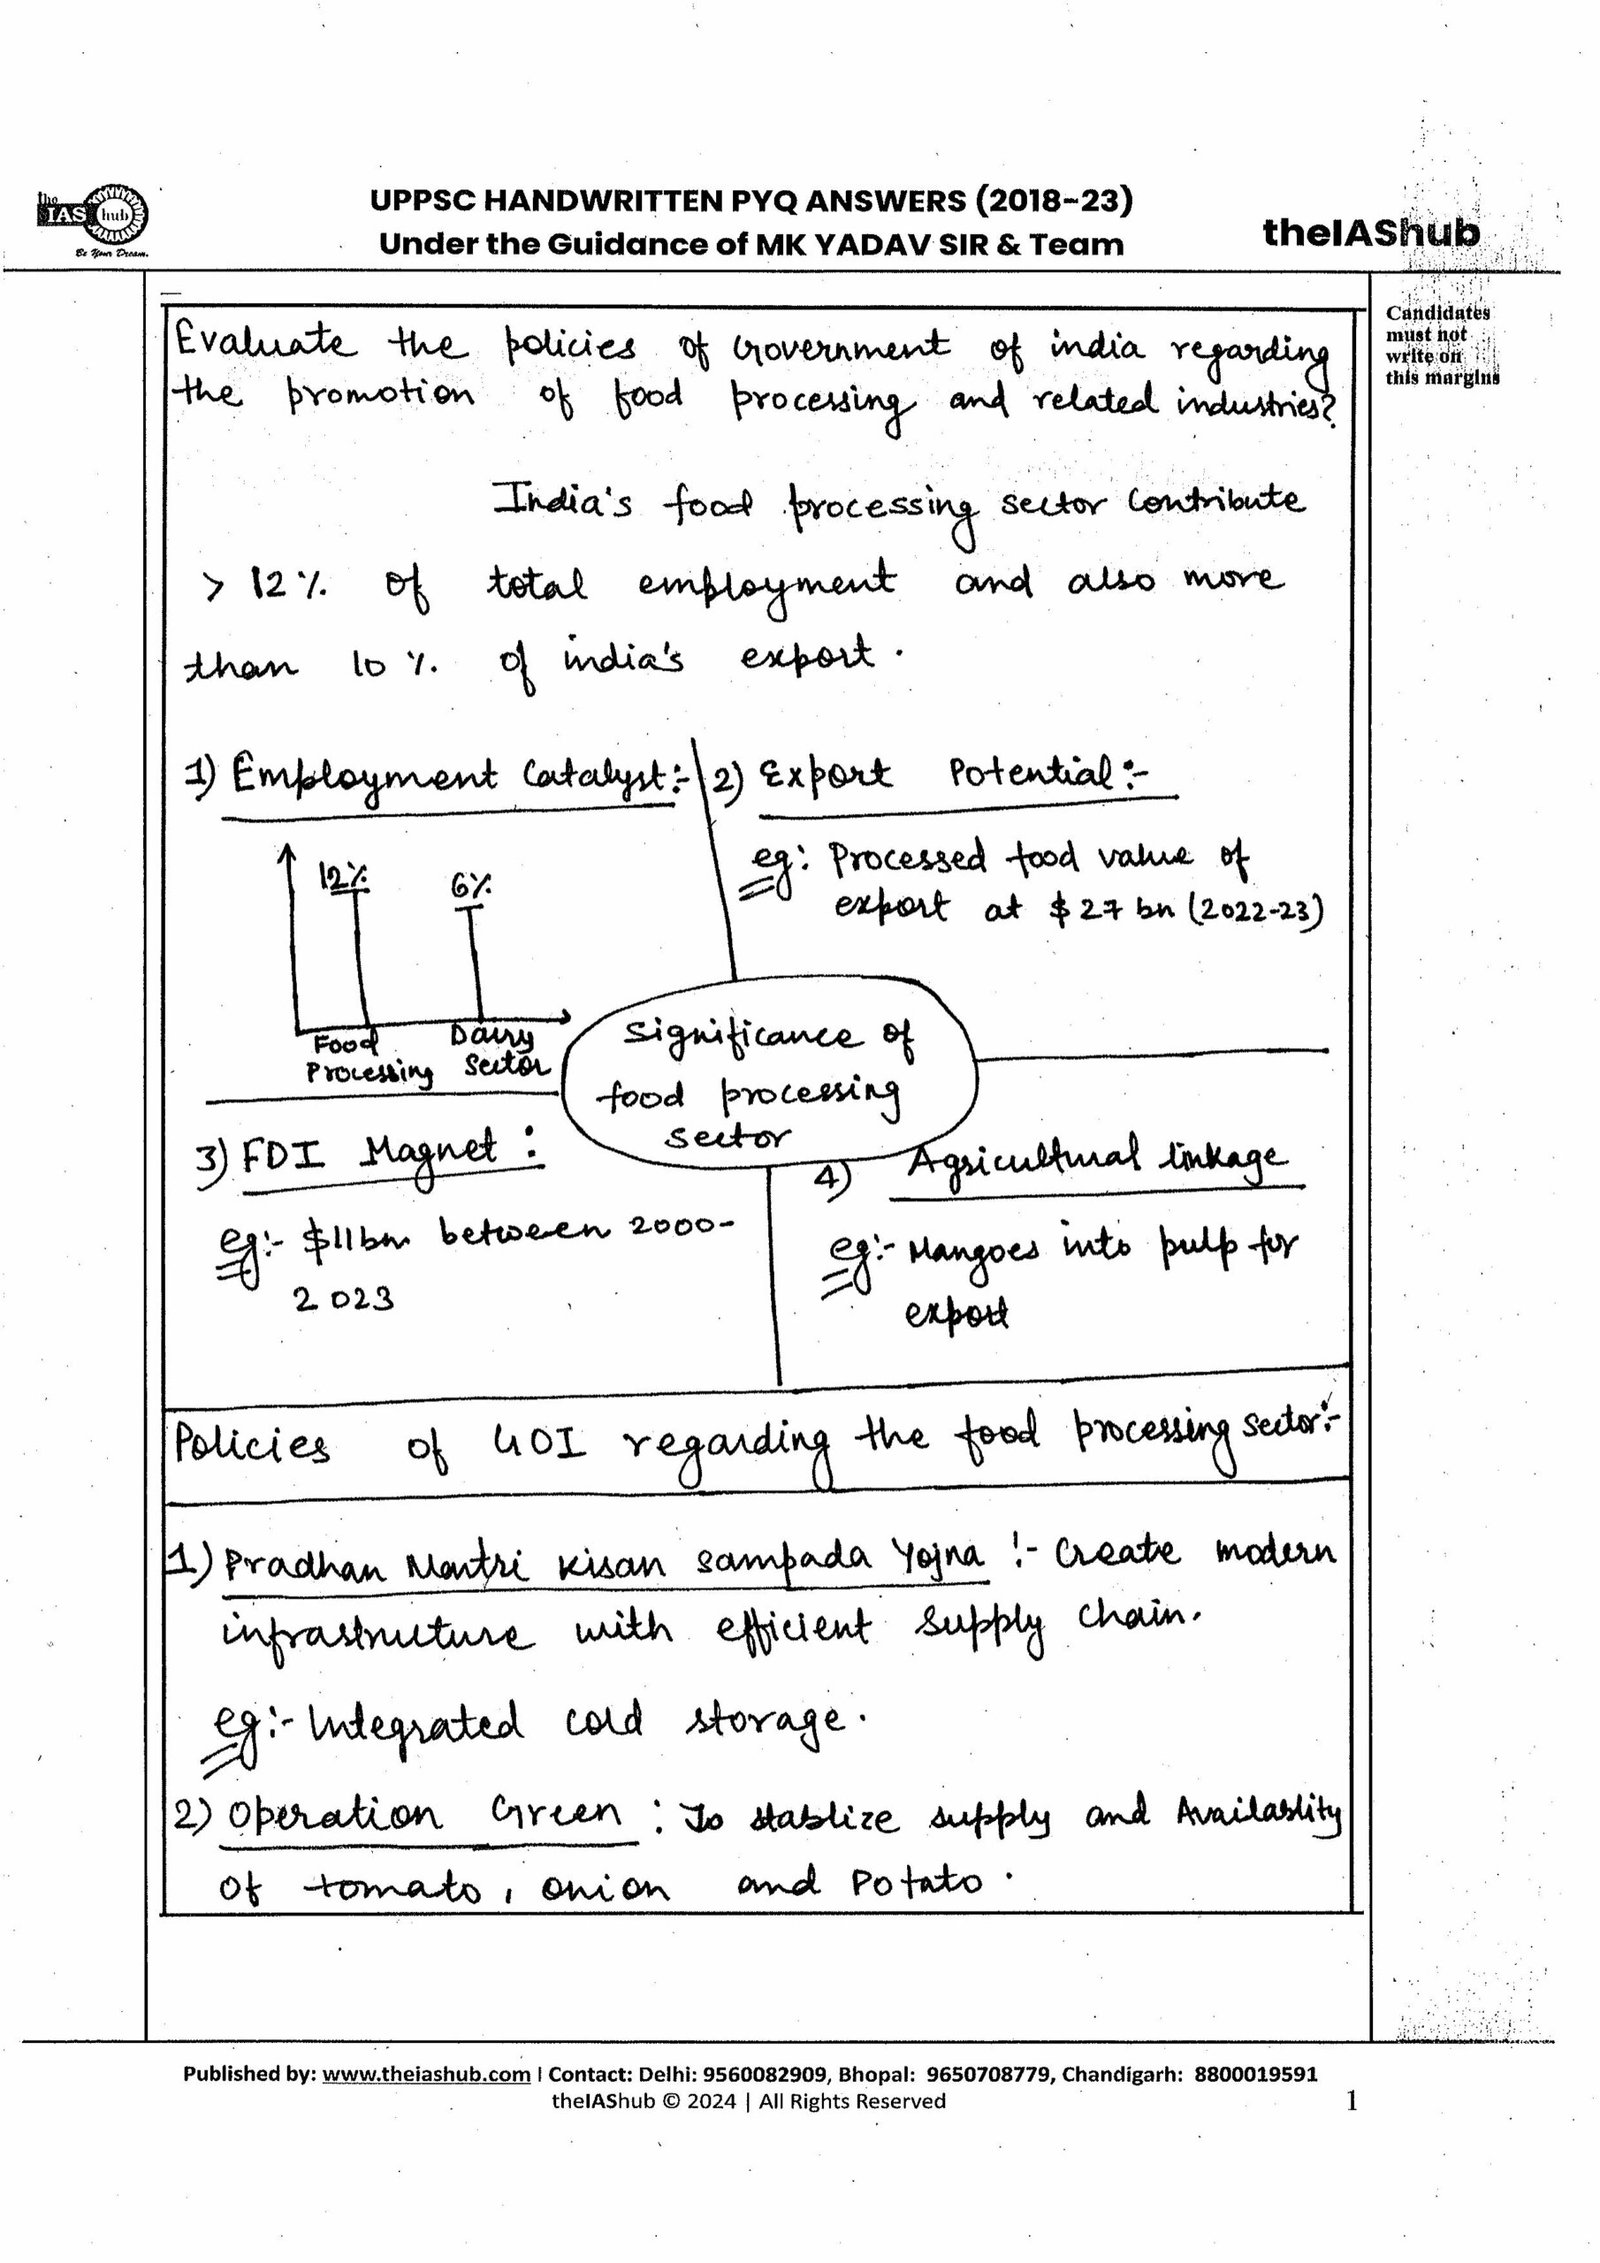 the
IAS hub
Be Your Dream.
UPPSC HANDWRITTEN PYQ ANSWERS (2018-23)
Under the Guidance of MK YADAV SIR & Team
theIAShub
Candidates
must not
write on
this margins
Evaluate the policies of Government of india regarding
the promotion of food processing and related industries?
India's food processing sector contribute
> 12% of total employment and also more
than 10% of india's export.
1) Employment Catalyst:-
12%
6%
Food
Processing
Dairy
Sector
2) Export Potential:-
eg: Processed food value of
export at $27 bn (2022-23)
Significance of
food processing
sector
3) FDI Magnet:
eg:- $11bn between 2000-
2023
4) Agricultural linkage
eg:- Mangoes into pulp for
export
Policies of GOI regarding the food processing sector:-
1) Pradhan Mantri Kisan Sampada Yojna :- Create modern
infrastructure with efficient supply chain.
eg:- Integrated cold storage.
2) Operation Green : To stablize supply and Availablity
of tomato, onion and Potato.
Published by: www.theiashub.com | Contact: Delhi: 9560082909, Bhopal: 9650708779, Chandigarh: 8800019591
theIAShub © 2024 | All Rights Reserved
1